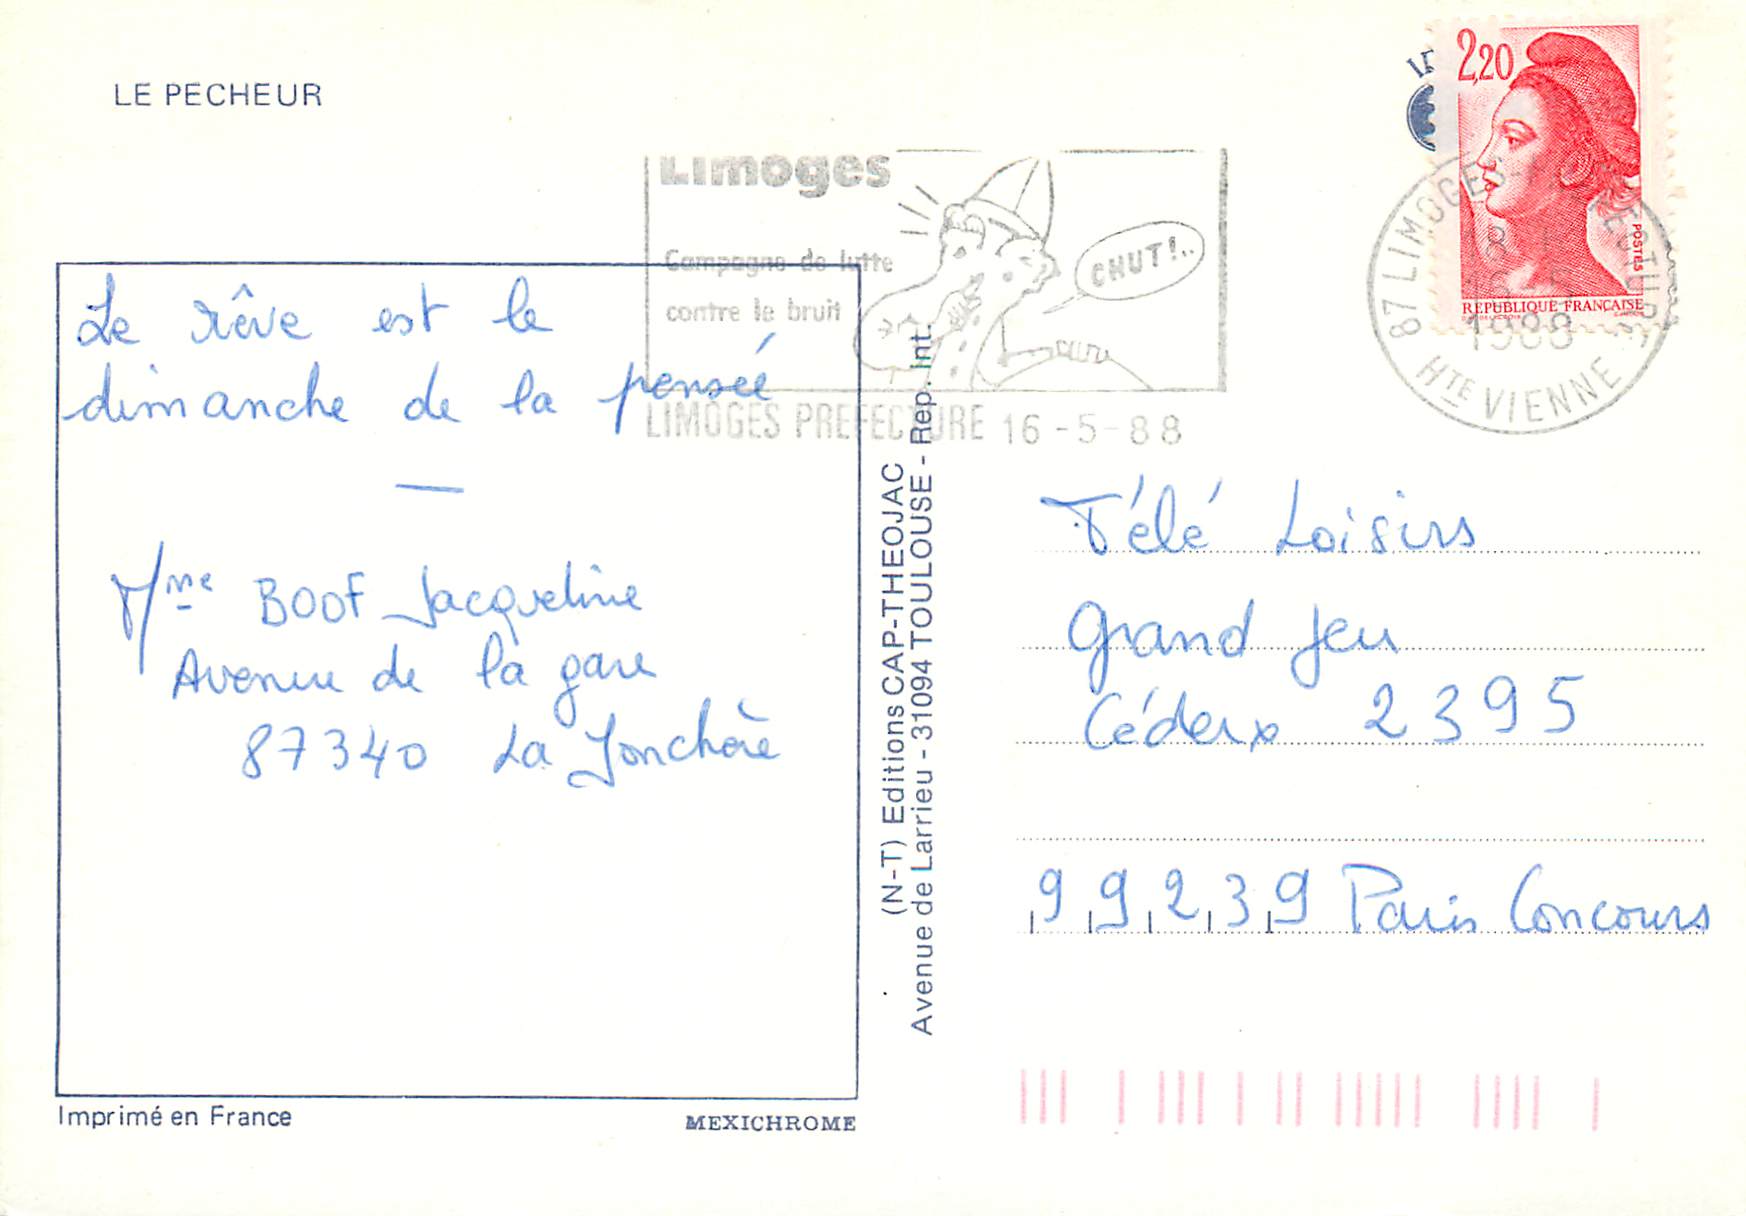 LE PECHEUR
Limoges
Campagne de lutte
contre le bruit
CHUT!..
LIMOGES PREFECTURE 16-5-88
2,20
POSTES
REPUBLIQUE FRANCAISE
87 LIMOGES
1988
HTE VIENNE
Le rêve est le
dimanche de la pensée
—
Mme BOOF Jacqueline
Avenue de la gare
87340 La Jonchère
(N-T) Editions CAP-THEOJAC
Avenue de Larrieu - 31094 TOULOUSE - Rep. Int.
Télé Loisirs
Grand Jeu
Cédex 2395
99239 Paris Concours
Imprimé en France
MEXICHROME